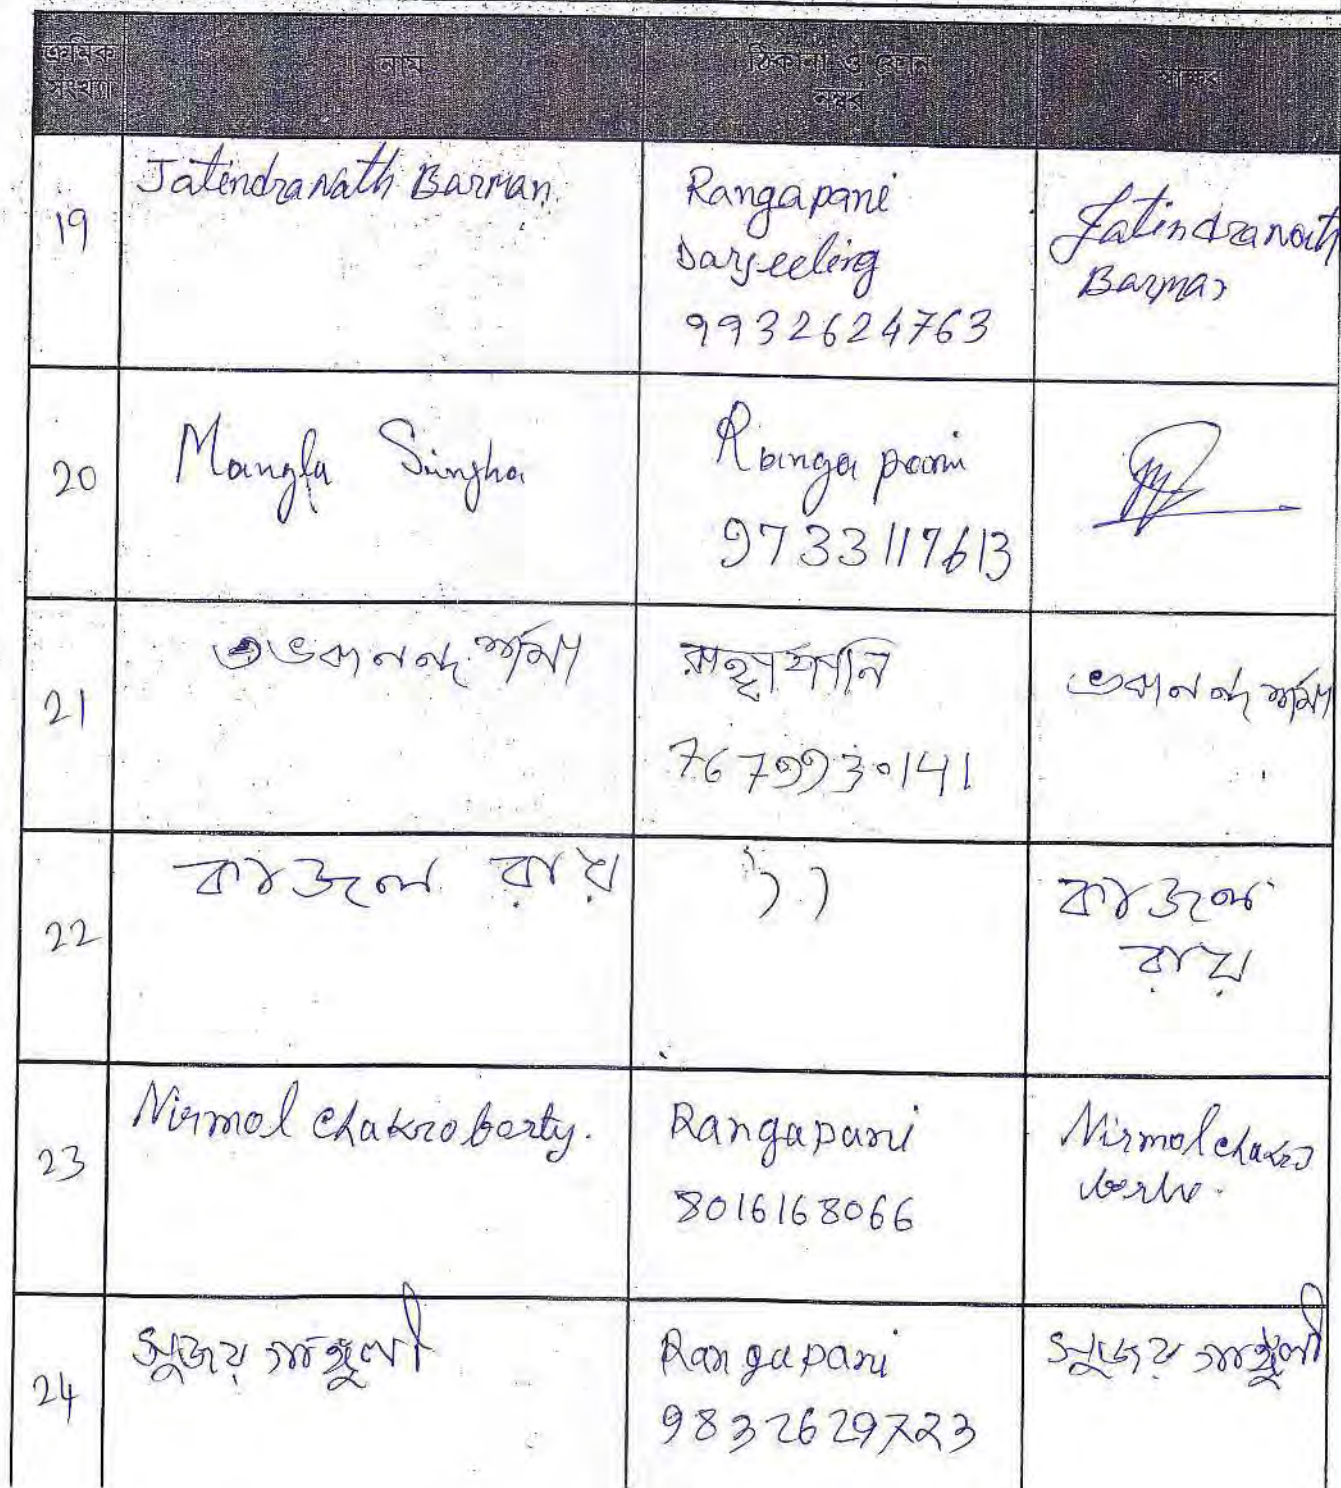 ক্রমিক
সংখ্যা
নাম
ঠিকানা ও ফোন
নম্বর
স্বাক্ষর
19
Jatindranath Barman
Rangapani
Darjeeling
9932624763
Jatindranath
Barman
20
Mangla Singha
Ranga pani
9733117613
21
ভবানন্দ শর্মা
রাঙ্গাপানি
7679930141
ভবানন্দ শর্মা
22
কাজল রায়
কাজল
রায়
23
Nirmol Chakroborty.
Rangapani
8016168066
Nirmol chakro
24
সুজয় গাঙ্গুলী
Rangapani
9832629723
সুজয় গাঙ্গুলী